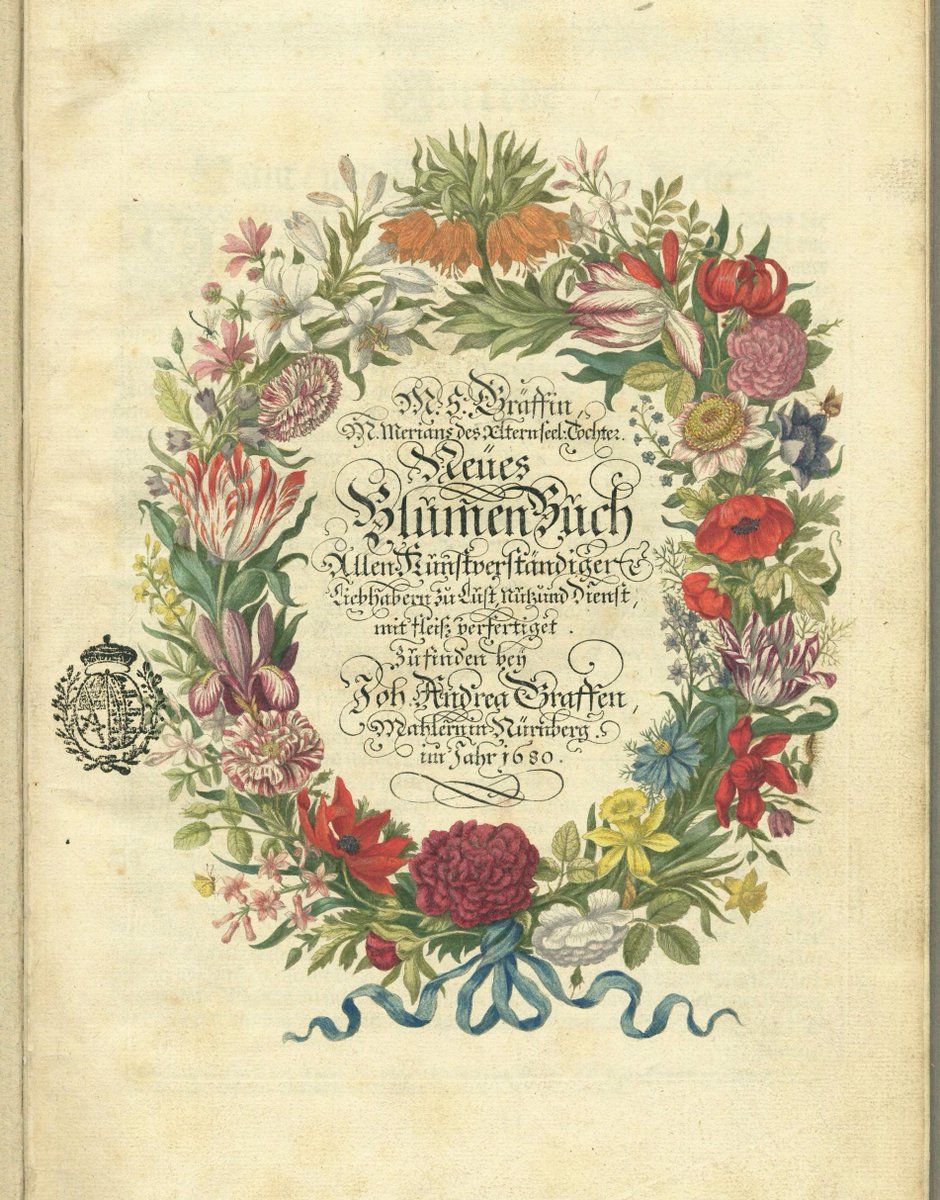 M. S. Gräffin,
M. Merians des Ältern seel: Tochter.
Neües
Blumen Büch
Allen Kunstverständigen
Liebhabern zu Lust, Nutz und Dienst,
mit fleiß verfertiget.
Zufinden bey
Joh. Andrea Graffen,
Mahlern in Nürnberg.
im Jahr 1680.